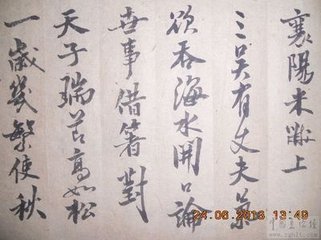 襄陽米黻上
三吴有丈夫氣
欲吞海水開口論
世事借箸對
天子瑞節高如松
一歲幾繁使秋
24.06.2013 13:49